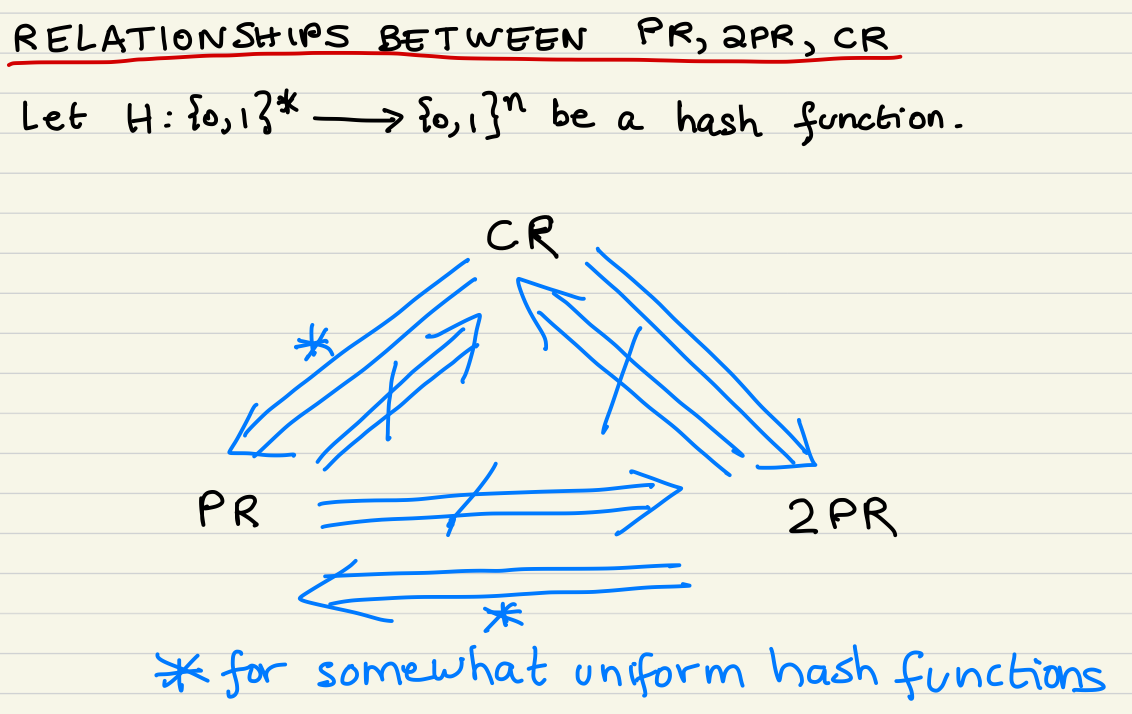 RELATIONSHIPS BETWEEN PR, 2PR, CR
Let H: {0,1}* ⟶ {0,1}ⁿ be a hash function.
CR
*
PR
2PR
*
* for somewhat uniform hash functions